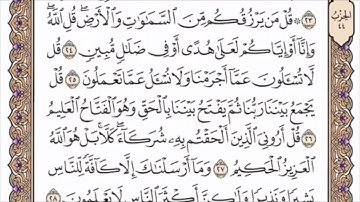 الحزب ٤٤
٢٣ ۞ قُلْ مَن يَرْزُقُكُم مِّنَ ٱلسَّمَٰوَٰتِ وَٱلْأَرْضِ ۖ قُلِ ٱللَّهُ ۖ
وَإِنَّآ أَوْ إِيَّاكُمْ لَعَلَىٰ هُدًى أَوْ فِى ضَلَٰلٍ مُّبِينٍ ٢٤ قُل
لَّا تُسْـَٔلُونَ عَمَّآ أَجْرَمْنَا وَلَا نُسْـَٔلُ عَمَّا تَعْمَلُونَ ٢٥ قُلْ
يَجْمَعُ بَيْنَنَا رَبُّنَا ثُمَّ يَفْتَحُ بَيْنَنَا بِٱلْحَقِّ وَهُوَ ٱلْفَتَّاحُ ٱلْعَلِيمُ
٢٦ قُلْ أَرُونِىَ ٱلَّذِينَ أَلْحَقْتُم بِهِۦ شُرَكَآءَ ۖ كَلَّا ۚ بَلْ هُوَ ٱللَّهُ
ٱلْعَزِيزُ ٱلْحَكِيمُ ٢٧ وَمَآ أَرْسَلْنَٰكَ إِلَّا كَآفَّةً لِّلنَّاسِ
بَشِيرًا وَنَذِيرًا وَلَٰكِنَّ أَكْثَرَ ٱلنَّاسِ لَا يَعْلَمُونَ ٢٨